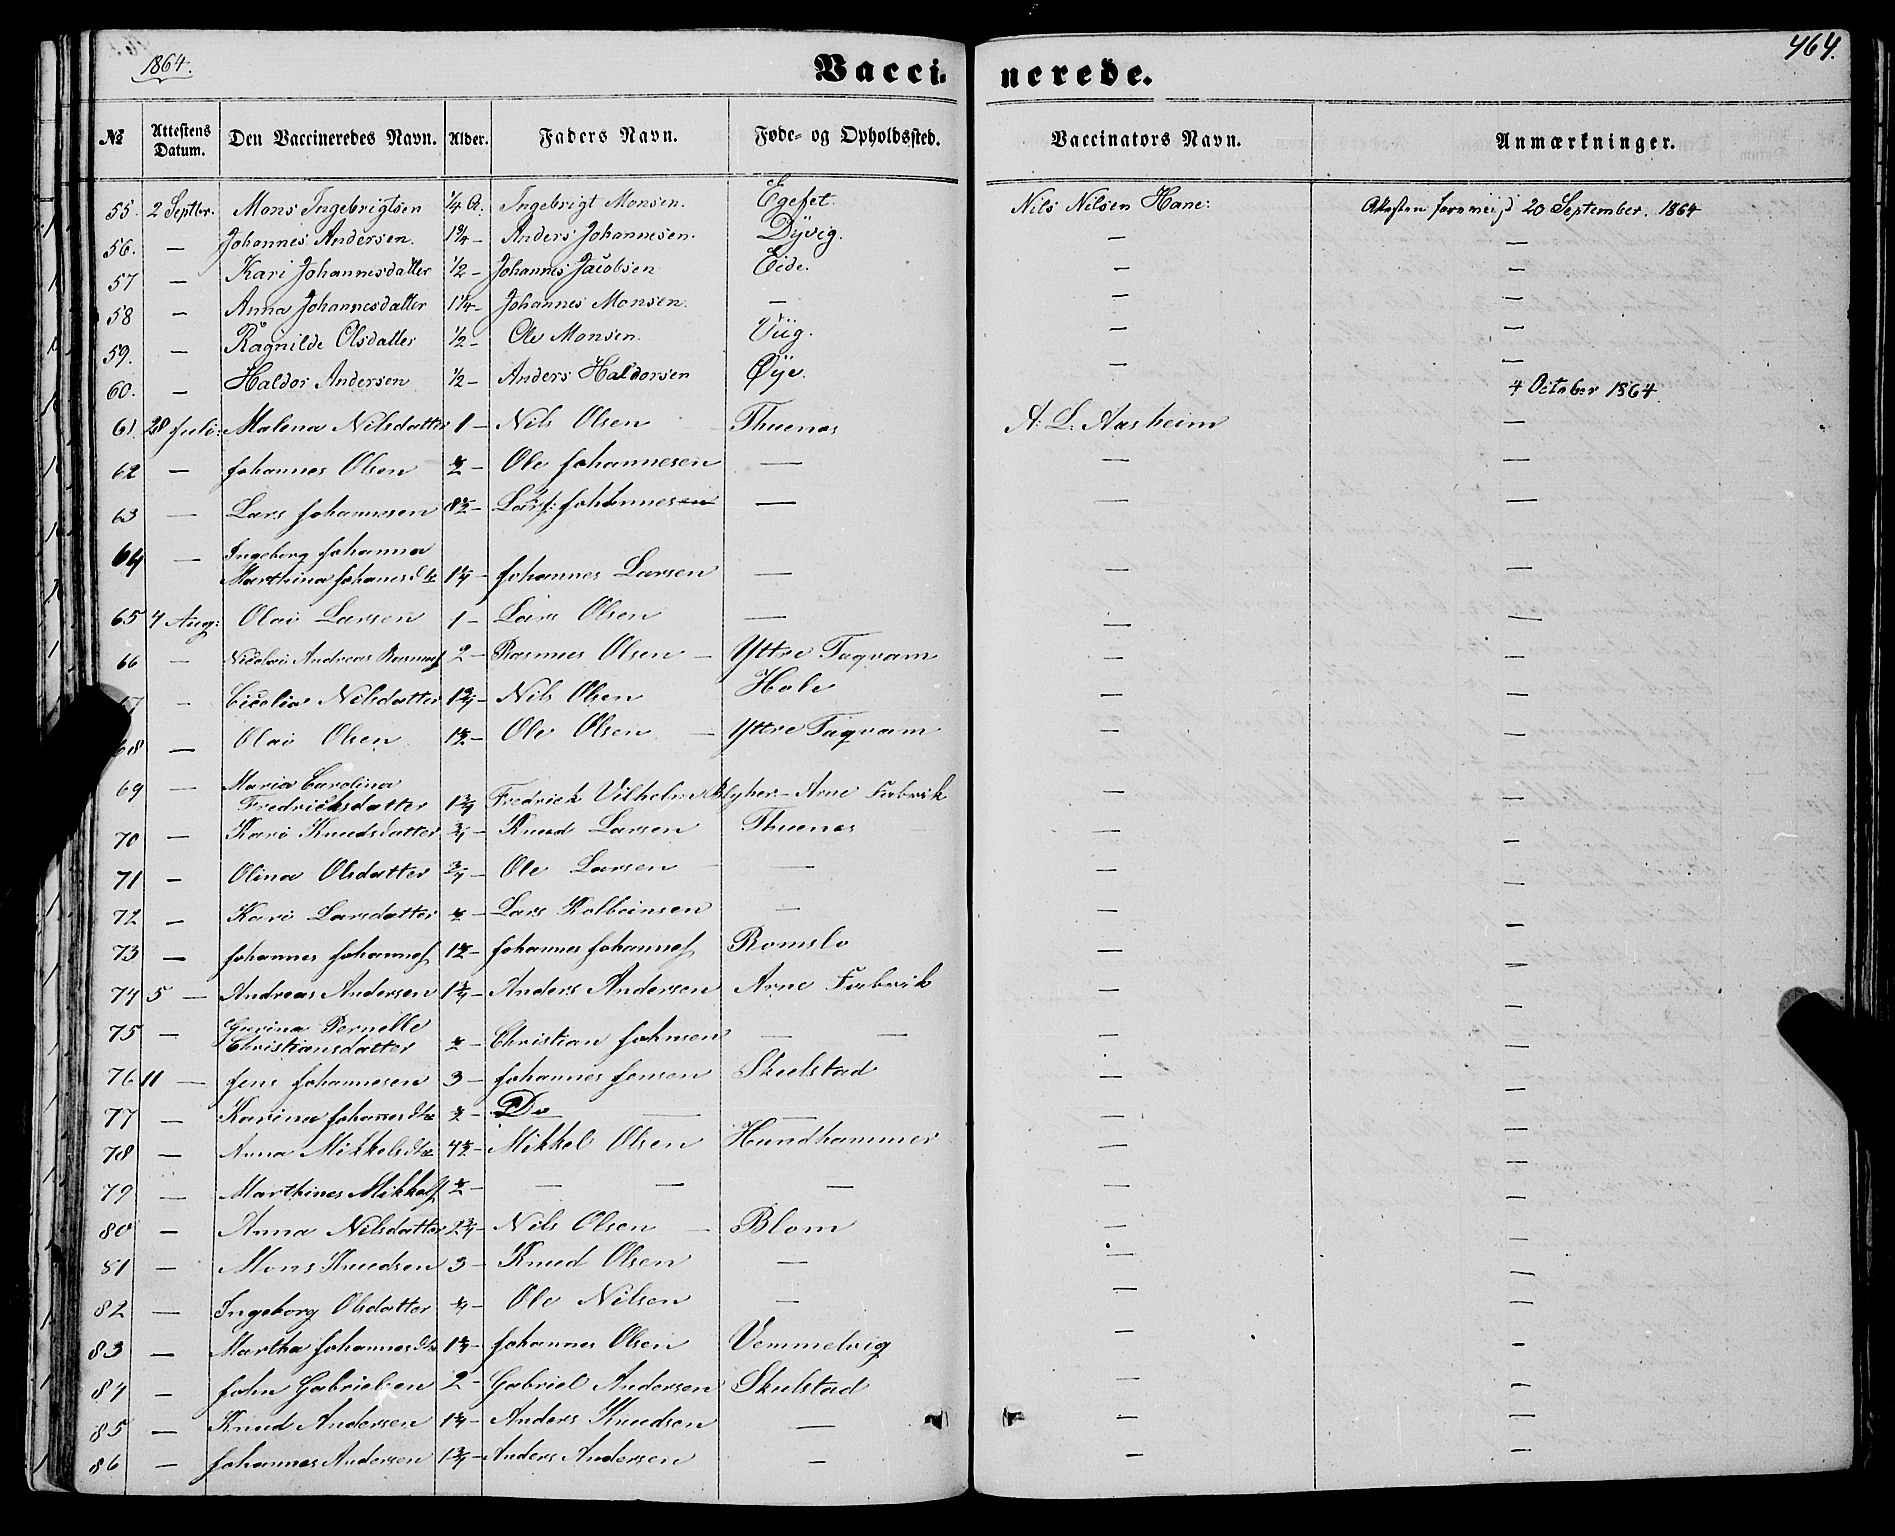 1864.
Vacci- nerede.
464.
№ Attestens Datum. Den Vaccineredes Navn. Alder. Faders Navn. Føde- og Opholdssted. Vaccinators Navn. Anmærkninger.
55. 2 Septbr. Mons Ingebrigtsen 1/4 A. Ingebrigt Monsen. Egeset. Nils Nilsen Hane: Attesten foreviist 20 September. 1864
56. — Johannes Andersen. Anders Johannesen. Dyvig. — —
57 — Kari Johannesdatter 1/2 — Johannes Jacobsen Eide. — —
58 — Anna Johannesdatter 1 1/4 — Johannes Monsen. — — —
59. — Ragnilde Olsdatter 1/2 — Ole Monsen. Viig. — —
60. — Haldor Andersen 1/2 — Anders Haldorsen Øye. — —
4 October 1864.
61. 28 Juli: Malena Nilsdatter 1 — Nils Olsen Thuenes A: L: Aasheim —
62 — Johannes Olsen 1/2 — Ole Johannesen — — —
63 — Lars Johannesen 8 1/2 — Johannesen — — —
64 — Ingeborg Johanna
Marthina Johanesdtr 1 1/4 — Johannes Larsen — — —
65 4 Aug: Olai Larsen 1 — Lars Olsen — — —
66 — Nicolai Andreas Rasmus 2 — Rasmus Olsen — Yttre Taqvam — —
— Cicelia Nilsdatter Nils Olsen Hole — —
68 — Olai Olsen 1 1/2 — Ole Olsen — Yttre Taqvam — —
69 — Maria Carolina
Fredricksdatter 1 3/4 Fredrick Vilhelm Arne Fabrik — —
70 — Kari Knudsdatter 3/4 — Knud Larsen Thuenes — —
71 — Olina Olsdatter 3/4 — Ole Larsen — — —
72 — Kari Larsdatter 1/2 — Lars Kolbeinsen — — —
73 — Johannes Johannes 1 1/2 — Johannes Johannes Romslo — —
74 5 — Andreas Andersen 1 3/4 — Anders Andersen Arne Fabrik — —
75 — Gurina Pernille
Christiansdatter 1/2 — Christian Johnsen — — — —
76 11 — Jens Johannesen 3 — Johannes Jensen Skulstad — —
77 — Karina Johannesdtr 1/2 — Do — — — —
78 — Anna Mikkelsdtr 4 1/2 — Mikkel Olsen Hundhammer — —
79 — Marthines Mikkels 1/2 — — — — — —
80 — Anna Nilsdatter 2 3/4 — Nils Olsen — Blom — —
81 — Mons Knudsen 3 — Knud Olsen — — —
82 — Ingeborg Olsdatter 1/4 — Ole Nilsen — — —
83 — Martha Johannesdtr 1 1/4 — Johannes Olsen Vemmelvig — —
84 — John Gabrielsen 2 — Gabriel Andersen Skulstad — —
85 — Knud Andersen 1 1/4 — Anders Knudsen — — —
86 — Johannes Andersen 1 3/4 — Anders Andersen — — —